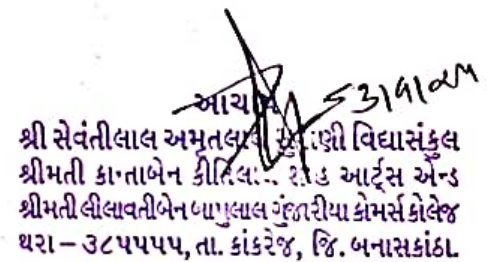 આચાર્ય
શ્રી સેવંતીલાલ અમૃતલાલ વિદ્યાસંકુલ
શ્રીમતી કાન્તાબેન કીર્તિલાલ શાહ આર્ટ્સ એન્ડ
શ્રીમતી લીલાવતીબેન બાપુલાલ ગુંજારીયા કોમર્સ કોલેજ
થરા – ૩૮૫૫૫૫, તા. કાંકરેજ, જિ. બનાસકાંઠા.